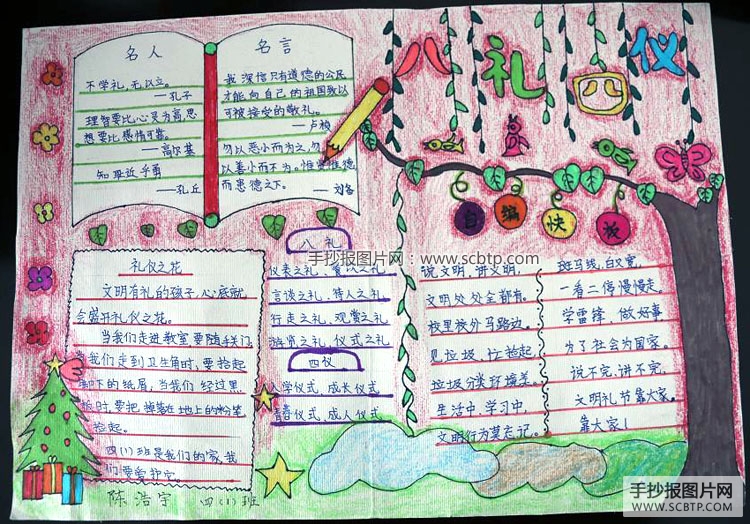 八礼
四仪
名人
名言
不学礼,无以立。
——孔子
理智要比心灵为高,思
想要比感情可靠。
——高尔基
知耻近乎勇
——孔丘
我深信只有道德的公民
才能向自己的祖国致以
可被接受的敬礼。
——卢梭
勿以恶小而为之,勿
以善小而不为。惟贤惟德
——刘备
礼仪之花
文明有礼的孩子,心底就
会盛开礼仪之花。
当我们走进教室要随手关门
当我们走到卫生角时,要拾起
脚下的纸屑,当我们经过黑
板时,要把掉落在地上的粉笔
拾起。
四(1)班是我们的家,我
们要爱护它。
陈浩宇 四(1)班
八礼
仪表之礼、餐饮之礼
言谈之礼、待人之礼
行走之礼、观赏之礼
游览之礼、仪式之礼
四仪
入学仪式、成长仪式
青春仪式、成人仪式
自编快板
说文明,讲文明,
文明处处全都有。
校里校外马路边。
见垃圾,忙拾起,
垃圾分类环境美。
生活中,学习中,
文明行为莫忘记。
斑马线,白又宽,
一看二停慢慢走。
学雷锋,做好事
为了社会为国家。
说不完,讲不完,
文明礼节靠大家。
靠大家!
手抄报图片网:www.scbtp.com
手抄报图片网
WWW.SCBTP.COM